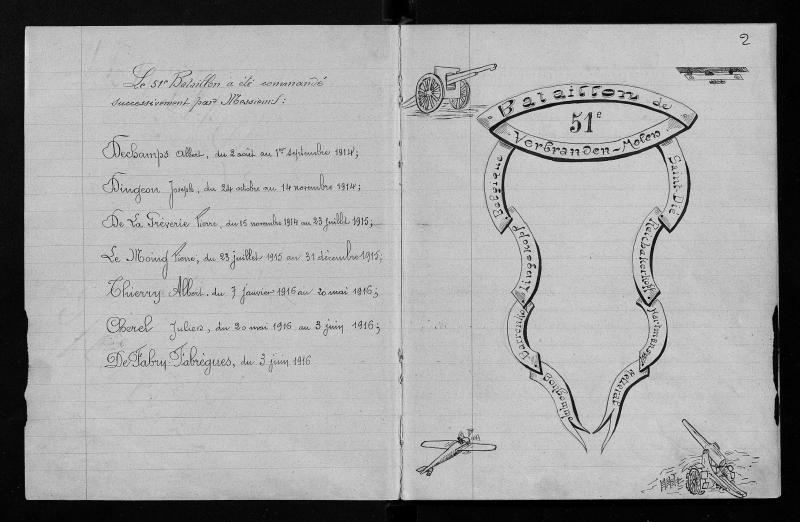 Le 51e Bataillon a été commandé
successivement par Messieurs:
Dechamps Albert, du 2 août au 1er septembre 1914;
Dingeon Joseph, du 24 octobre au 14 novembre 1914;
De La Tréverie Pierre, du 15 novembre 1914 au 23 juillet 1915;
Le Moing Pierre, du 23 juillet 1915 au 31 décembre 1915;
Thierry Albert. du 7 janvier 1916 au 20 mai 1916;
Cherel Julien, du 20 mai 1916 au 3 juin 1916;
De Fabry-Fabrègues, du 3 juin 1916
2
Bataillon de
51e
Verbranden-Molen
Belgique
Saint-Dié
Reichakerkopf